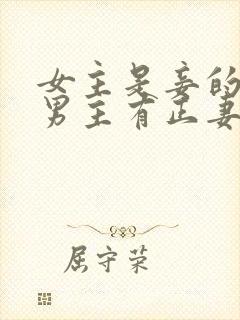 女主是妾的
男主有正妻
屈守荣